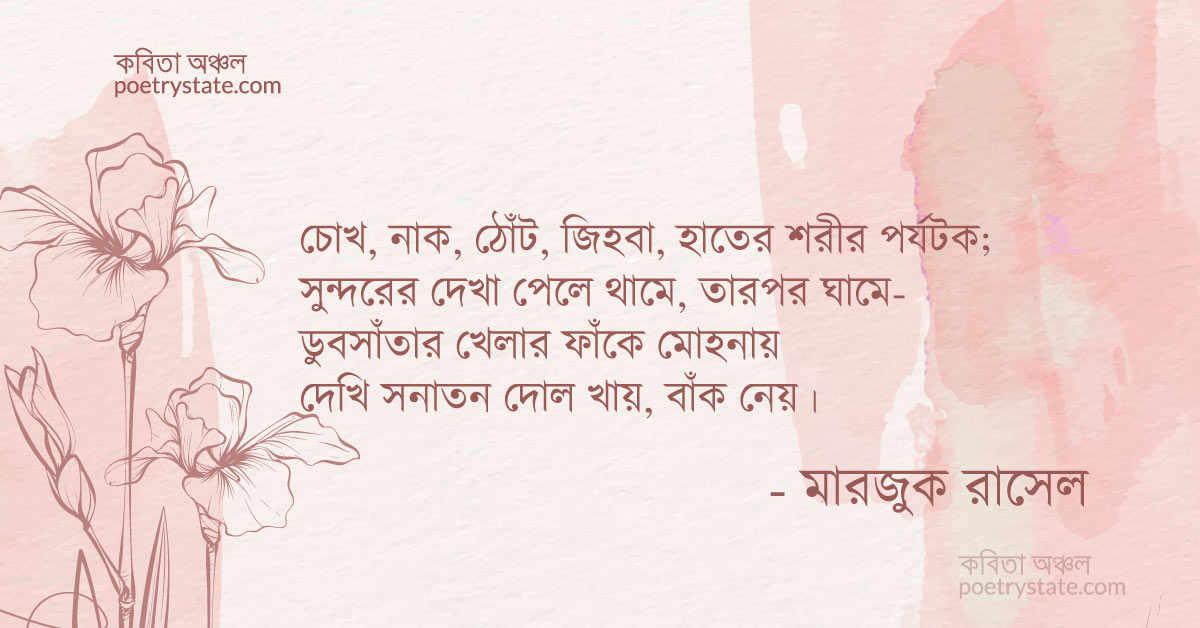 কবিতা অঞ্চল
poetrystate.com
চোখ, নাক, ঠোঁট, জিহবা, হাতের শরীর পর্যটক;
সুন্দরের দেখা পেলে থামে, তারপর ঘামে-
ডুবসাঁতার খেলার ফাঁকে মোহনায়
দেখি সনাতন দোল খায়, বাঁক নেয়।
- মারজুক রাসেল
কবিতা অঞ্চল
poetrystate.com